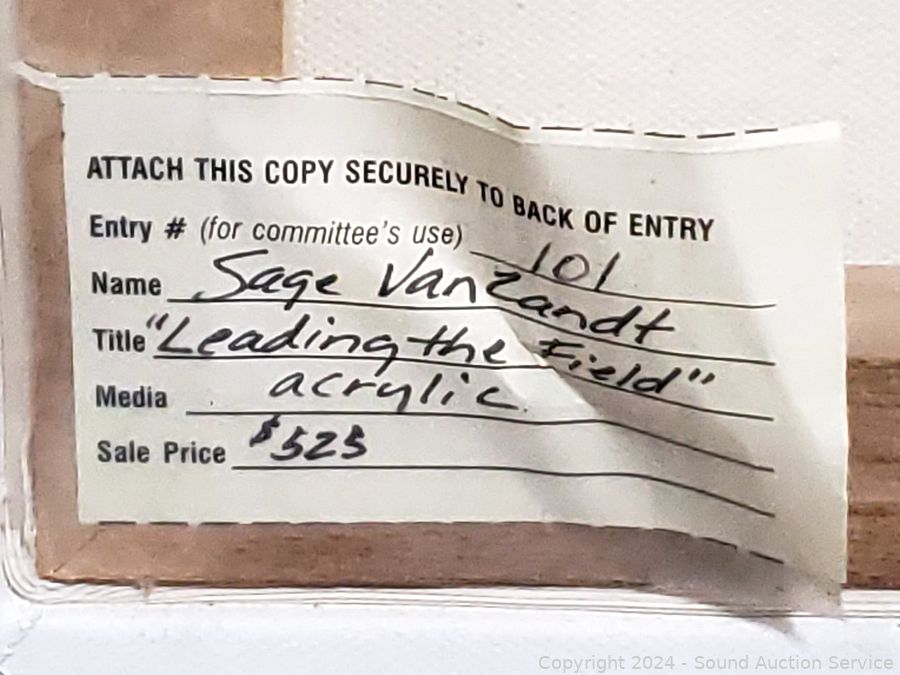 ATTACH THIS COPY SECURELY TO BACK OF ENTRY
Entry # (for committee's use) 101
Name Sage VanZandt
Title "Leading the Field"
Media acrylic
Sale Price $525
Copyright 2024 - Sound Auction Service